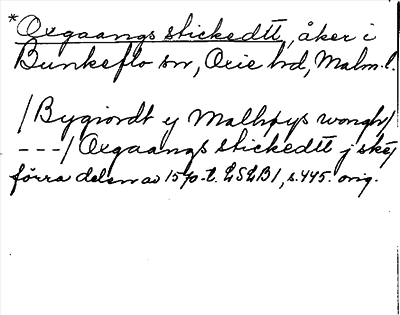 *Oxgaangs stickedtt, åker i
Bunkeflo sn, Oxie hd, Malm.l.
/Bygiordt ej Malhøys wongh/
---/Oxgaangs stickedtt j skej
förra delen av 1570-t. LSLB1, s.445. orig.